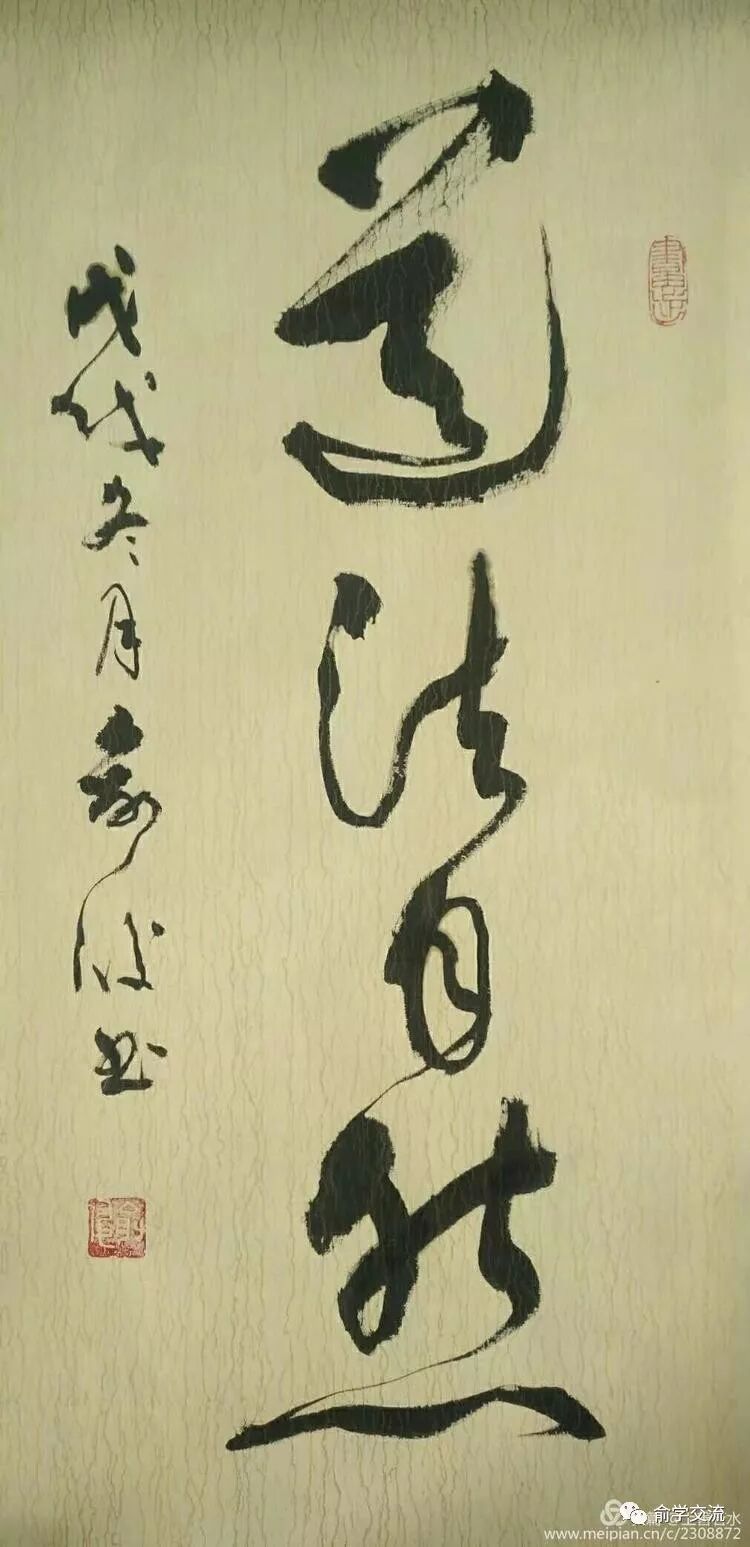 道法自然
戊戌冬月俞波书
俞学交流
www.meipian.cn/c/2308872